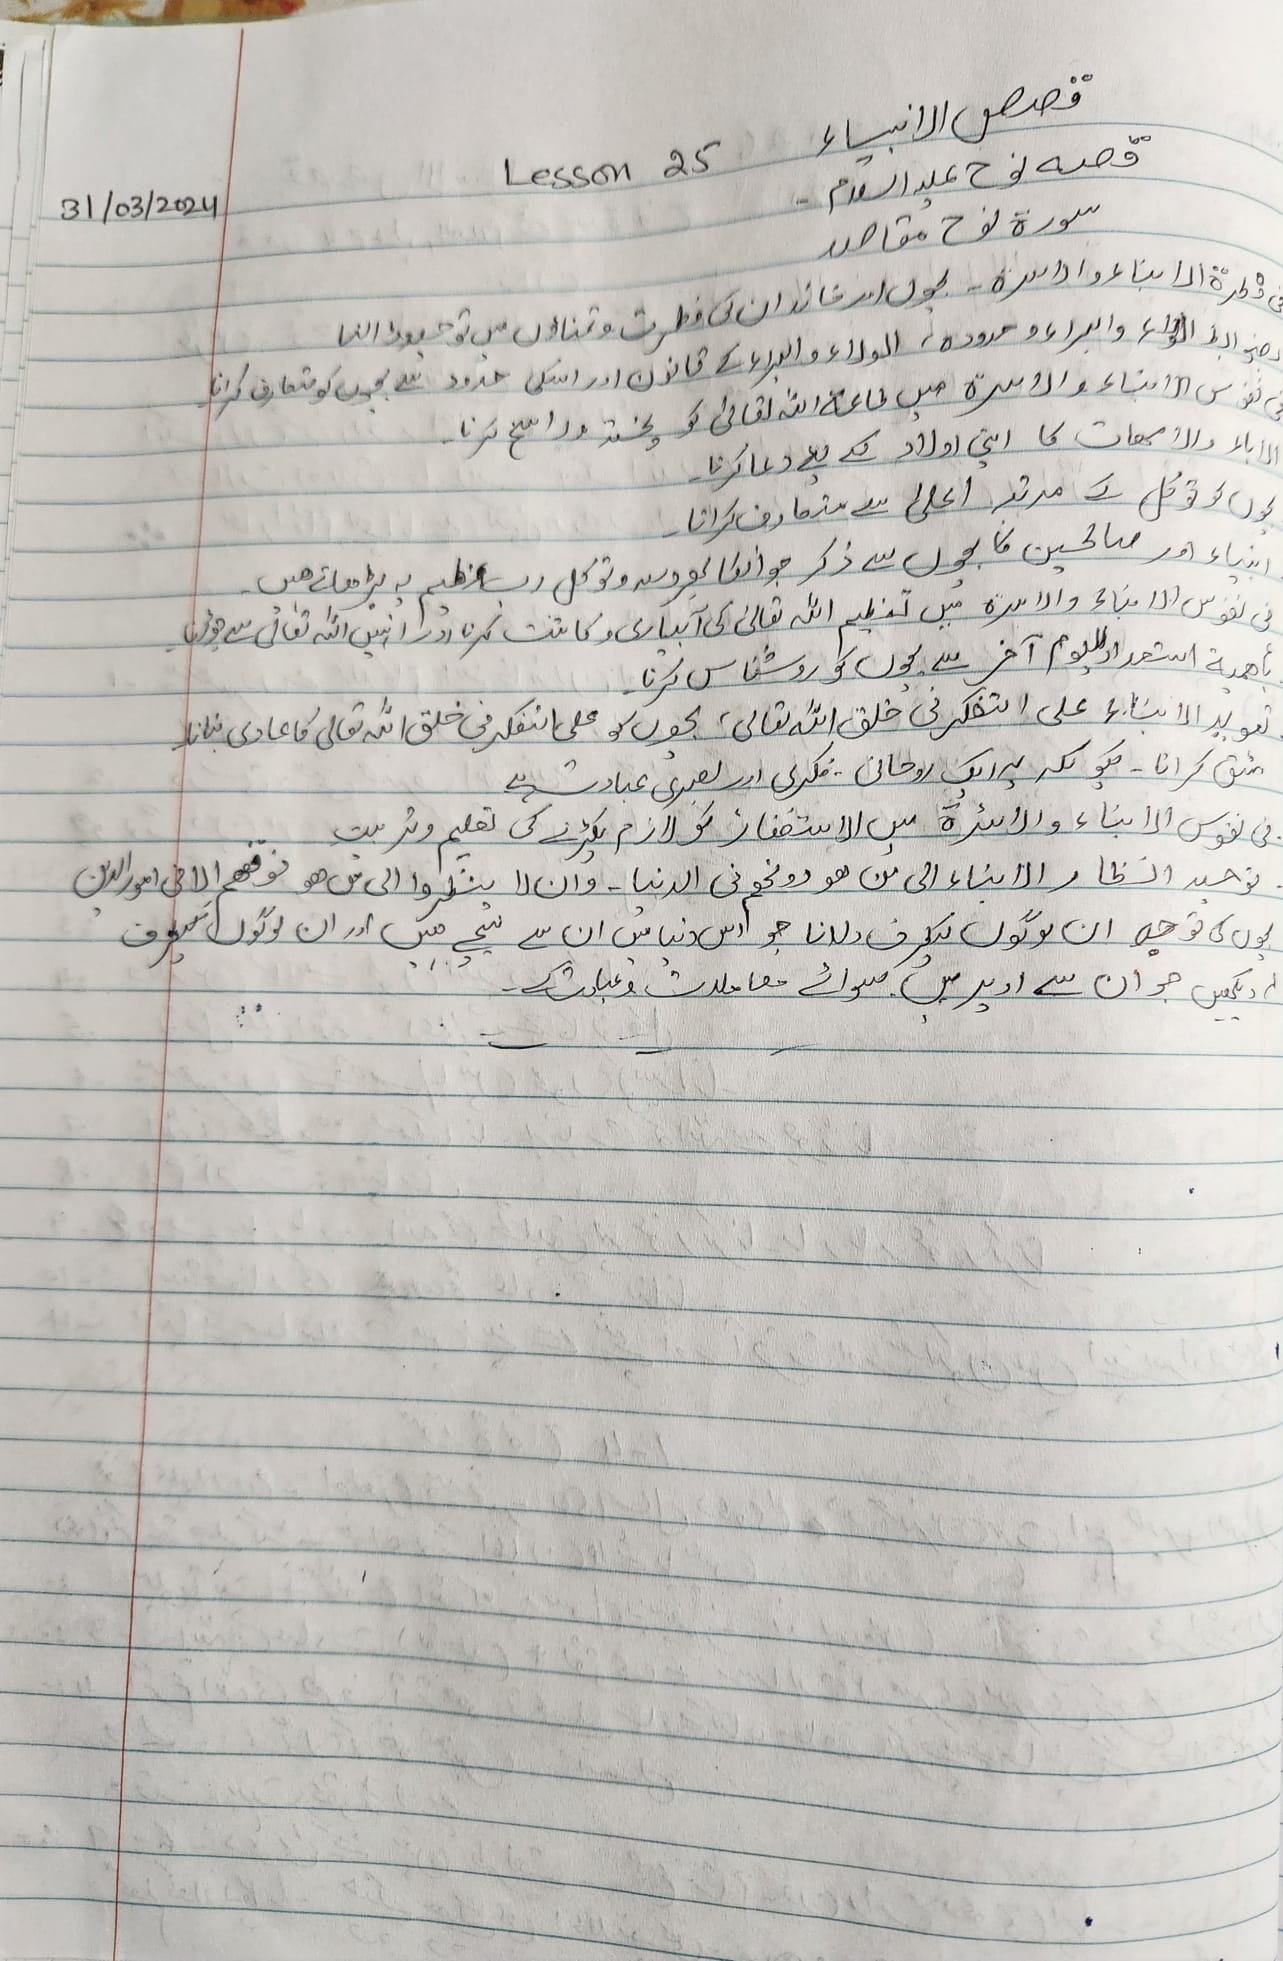 قصص الانبیاء
Lesson 25
قصہ نوح علیہ السلام -
31/03/2024
سورۃ نوح مقاصد
فی فطرۃ الابناء والاسرۃ - بچوں اور خاندان کی فطرت و تمناؤں میں توحید
الولاء والبراء وحدودہ، الولاء والبراء کے قانون اور اسکی حدود سے بچوں کو متعارف کرانا
فی نفوس الابناء والاسرۃ میں طاعۃ اللہ تعالیٰ کو پختہ و راسخ کرنا -
الاباء والامهات کا اپنی اولاد کے لیے دعا کرنا -
بچوں کو توکل کے مرتبہ اعلیٰ سے متعارف کرانا -
انبیاء اور صالحین کا بچوں سے ذکر جو انکا بھروسہ و توکل رب عظیم پہ بڑھاتے ھیں -
فی نفوس الابناء والاسرۃ میں تعظیم اللہ تعالیٰ کی آبیاری و کاشت کرنا اور انہیں اللہ تعالیٰ سے جوڑنا
بأهمية استعداد لليوم آخر سے بچوں کو روشناس کرنا -
تعوید الابناء علی التفکر فی خلق اللہ تعالی، بچوں کو علی التفکر فی خلق اللہ تعالی کا عادی بنانا
مشق کرانا - کیونکہ یہ ایک روحانی - فکری اور بصری عبادت ہے
فی نفوس الابناء والاسرۃ میں الاستغفار کو لازم پکڑنے کی تعلیم و تربیت
توحید انظار الابناء الی من هو دونهم فی الدنیا - وان لا ینظروا الی من هو فوقهم الا فی امور الدین
بچوں کی توجہ ان لوگوں کیطرف دلانا جو اس دنیا میں ان سے نیچے ہیں اور ان لوگوں کیطرف
نہ دیکھیں جو ان سے اوپر ہیں، سوائے معاملات و عبادت کے -